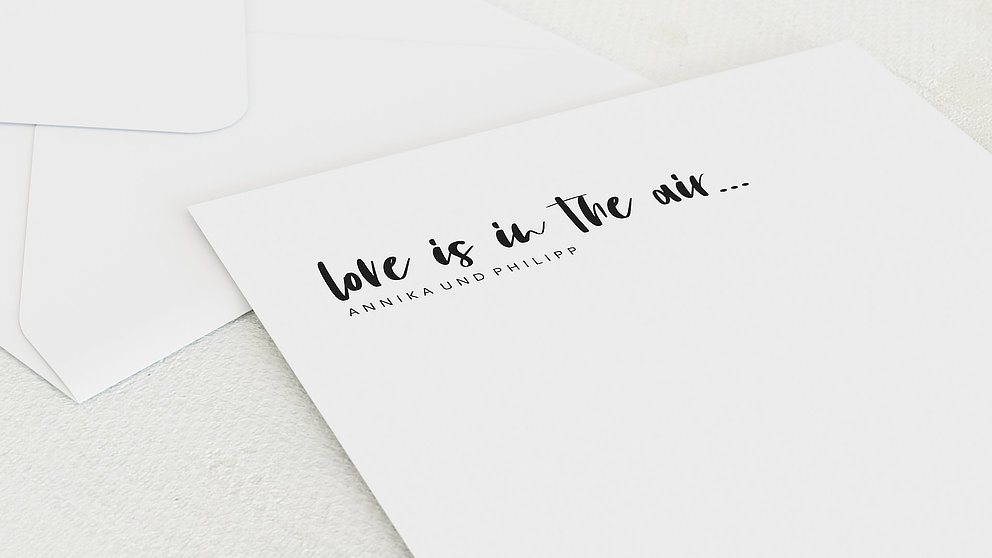 love is in the air...
ANNIKA UND PHILIPP